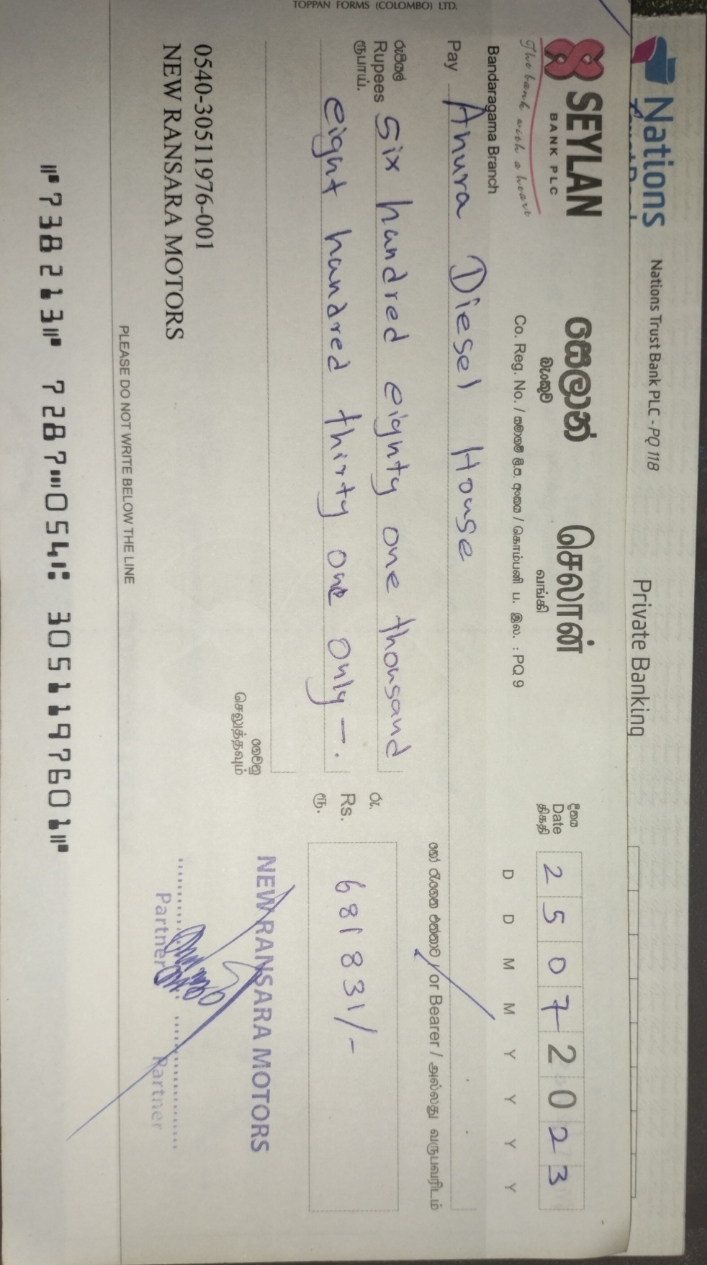 Nations
Nations Trust Bank PLC - PQ 118
Private Banking
SEYLAN
BANK PLC
The bank with a heart
සෙලාන්
බැංකුව
செலான்
வங்கி
Co. Reg. No. / සමාගම් ලි.ප. අංකය / கொம்பனி ப. இல. : PQ 9
Bandaragama Branch
දිනය
Date
திகதி
2 5 0 7 2 0 2 3
D D M M Y Y Y Y
Pay Anura Diesel House
හෝ රැගෙන එන්නාට / or Bearer / அல்லது வருபவரிடம்
රුපියල්
Rupees
ரூபாய்.
Six handred eighty one thousand
eight handred thirty one only -.
රු.
Rs.
ரூ.
681 831/-
ගෙවනු
செலுத்தவும்
0540-30511976-001
NEW RANSARA MOTORS
NEW RANSARA MOTORS
Partner
Partner
PLEASE DO NOT WRITE BELOW THE LINE
⑈738213⑈ 7287⑉054⑆ 3051197601⑈
TOPPAN FORMS (COLOMBO) LTD.